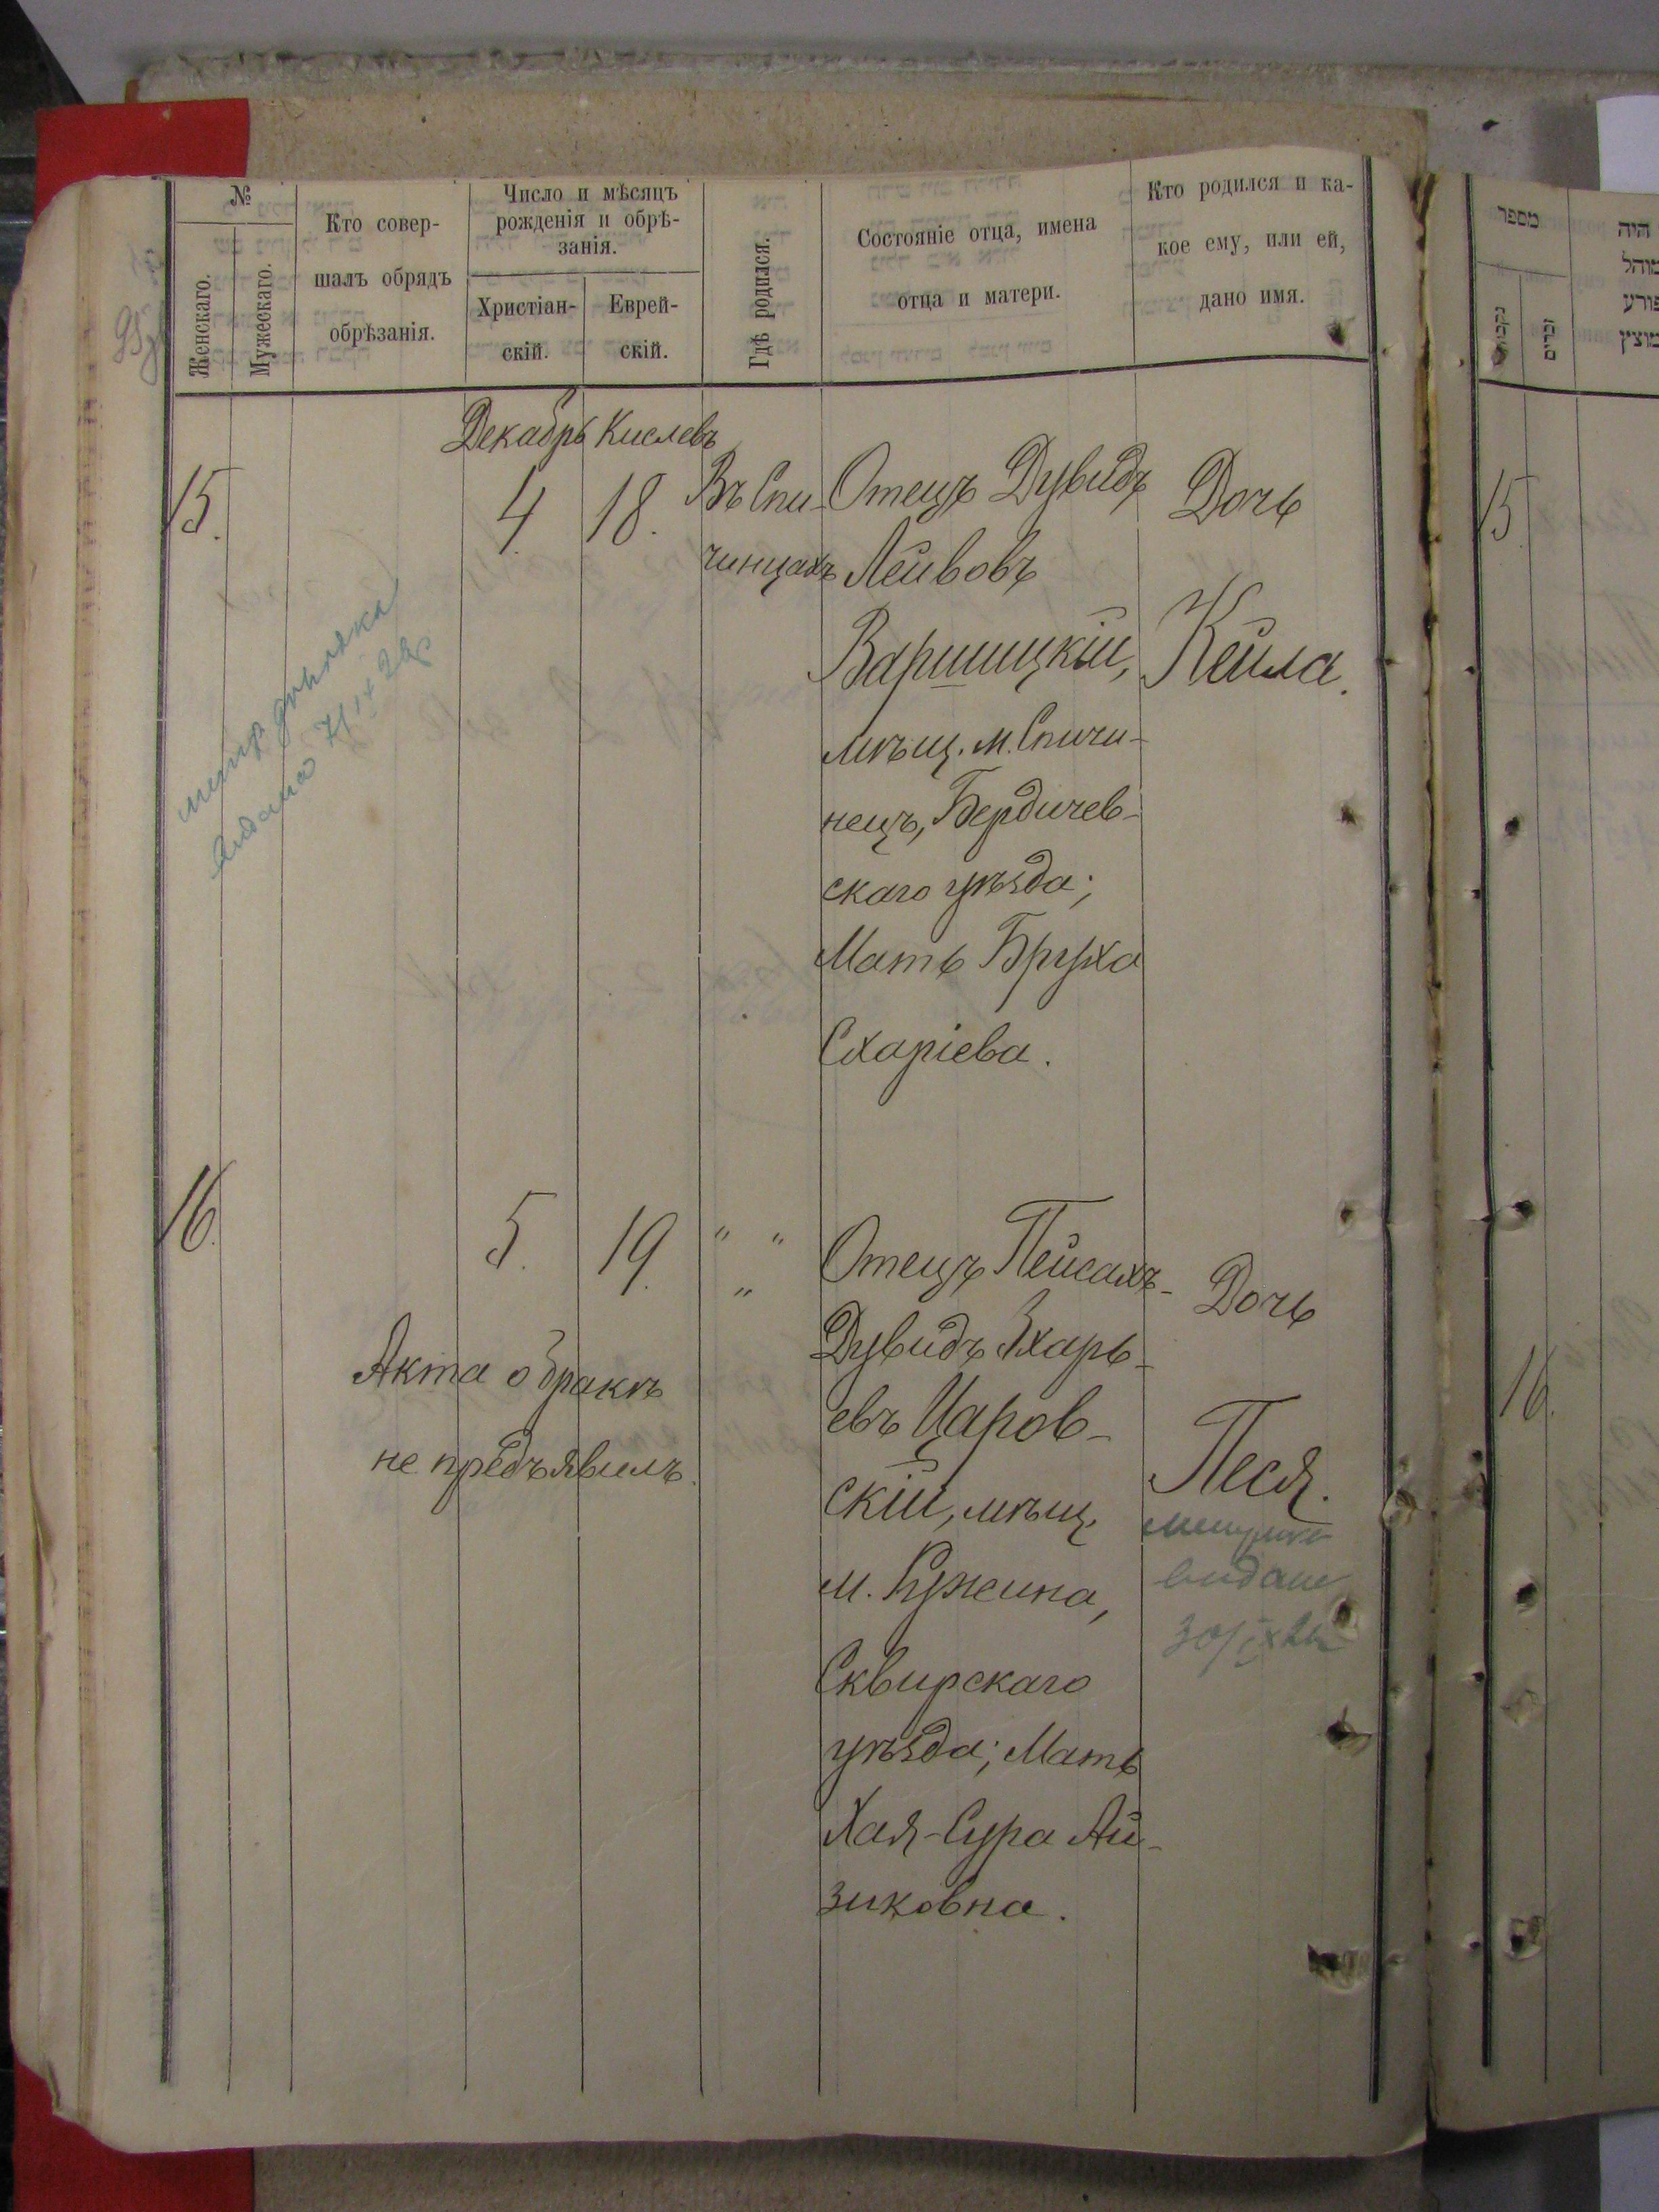 №
Женскаго.
Мужескаго.
Кто совер-
шалъ обрядъ
обрѣзанія.
Число и мѣсяцъ
рожденія и обрѣ-
занія.
Христіан-
скій.
Еврей-
скій.
Гдѣ родился.
Состояніе отца, имена
отца и матери.
Кто родился и ка-
кое ему, или ей,
дано имя.
Декабрь Кислевъ
15. 4. 18.
Въ Спи-
чинцахъ
Отецъ Дувидъ
Лейвовъ
Варшицкій,
мѣщ. м. Спичи-
нецъ, Бердичев-
скаго уѣзда;
Мать Бруха
Схаріева.
Дочь
Кейла.
16. 5. 19. " "
"
Акта о бракѣ
не предъявилъ.
Отецъ Пейсахъ-
Дувидъ Зхарь-
евъ Царов-
скій, мѣщ.
м. Ружина,
Сквирскаго
уѣзда; Мать
Хая-Сура Ай-
зиковна.
Дочь
Песя.
מספר
נקבות
זכרים
היה
מוהל
פורע
מוצץ
15
16.